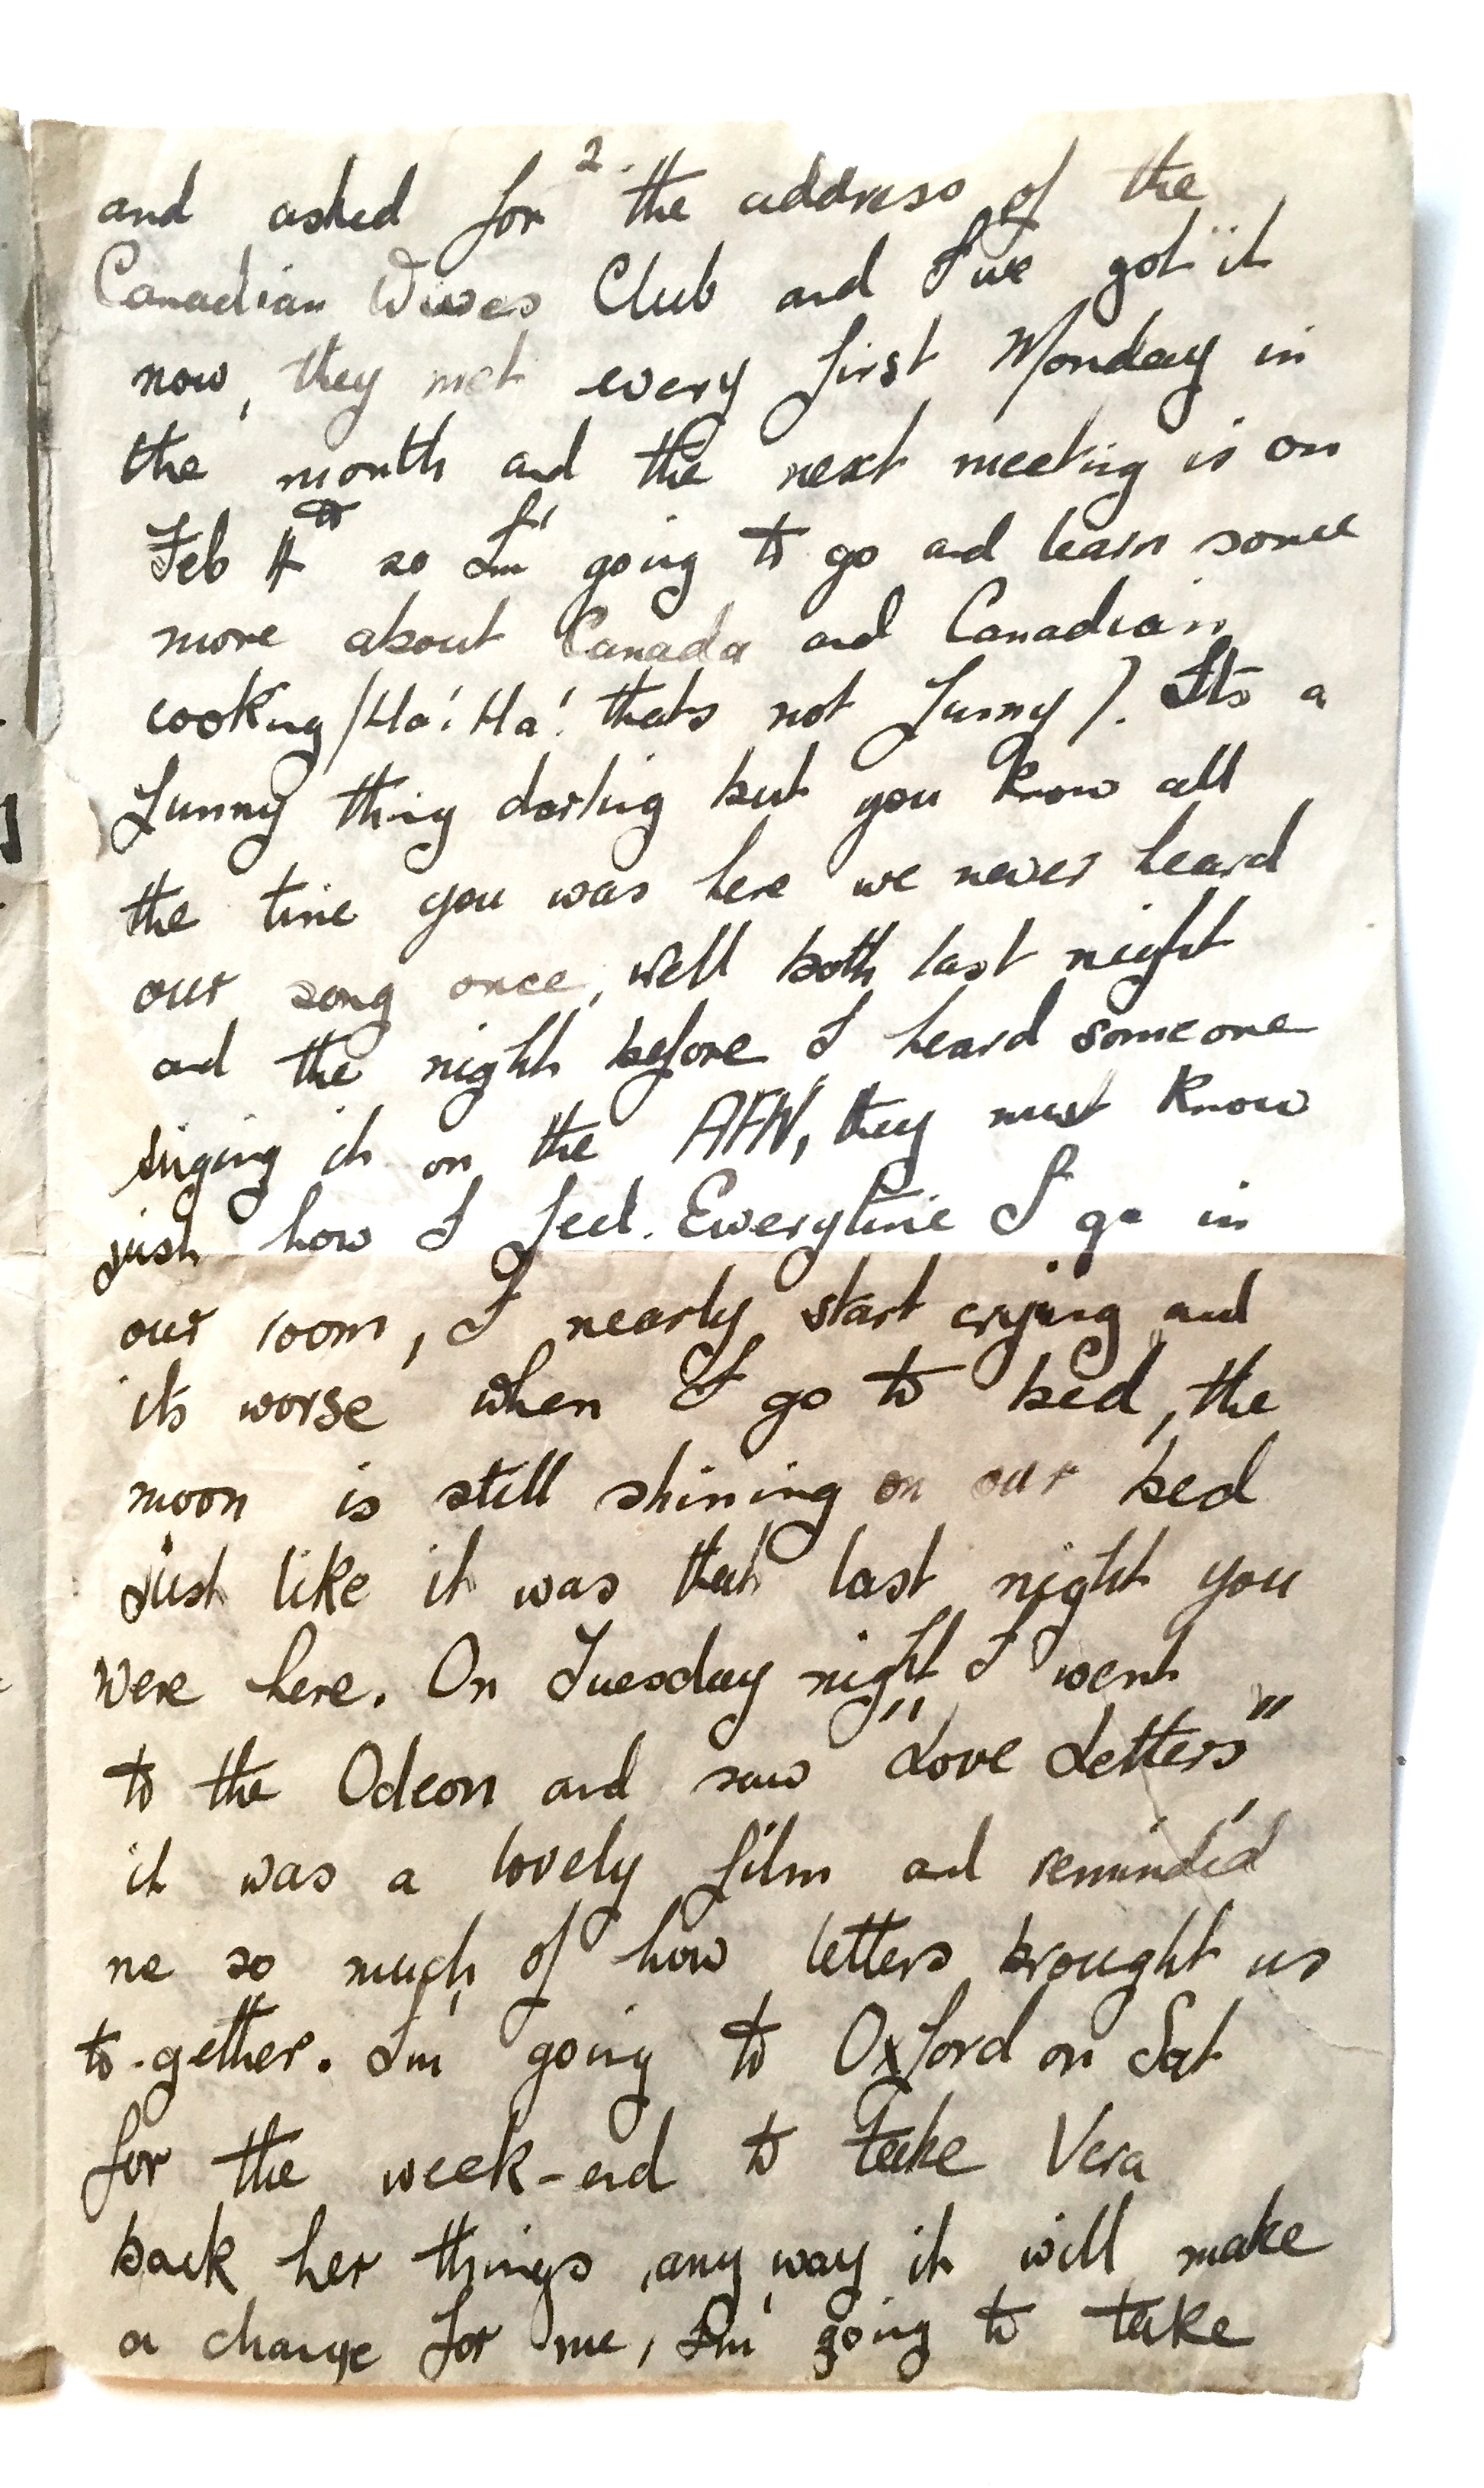 2.
and asked for the address of the
Canadian Wives Club and I've got it
now, they met every first Monday in
the month and the next meeting is on
Feb 4th so I'm going to go and learn some
more about Canada and Canadian
cooking (Ha! Ha! thats not funny). Its a
funny thing darling but you know all
the time you was here we never heard
our song once, well both last night
and the night before I heard someone
singing it on the AFN, they must know
just how I feel. Everytime I go in
our room, I nearly start crying and
its worse when I go to bed, the
moon is still shining on our bed
just like it was that last night you
were here. On Tuesday night I went
to the Odeon and saw "Love Letters"
it was a lovely film and reminded
me so much of how letters brought us
to-gether. I'm going to Oxford on Sat
for the week-end to take Vera
back her things, any way it will make
a change for me, I'm going to take